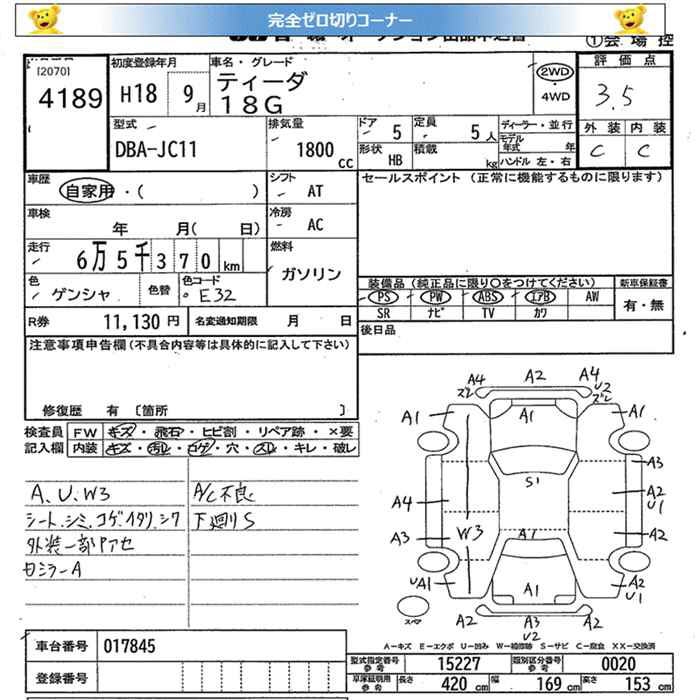 完全ゼロ切りコーナー
①会場控
[2070]
4189
初度登録年月
H18 9月
車名・グレード
ティーダ
18G
2WD
4WD
評価点
3.5
外装 内装
C C
型式
DBA-JC11
排気量
1800 cc
ドア 5
定員 5人
形状 HB
積載 kg
ディーラー・並行
モデル年式 年
ハンドル 左・右
車歴
自家用・( )
シフト AT
セールスポイント (正常に機能するものに限ります)
車検 年 月( 日)
冷房 AC
走行 6万5千370km
燃料
ガソリン
色 ゲンシャ
色替
色コード E32
装備品(純正品に限り○をつけてください)
新車保証書
PS PW ABS エアB AW
SR ナビ TV カワ
有・無
R券 11,130円
名変通知期限 月 日
後日品
注意事項申告欄(不具合内容等は具体的に記入して下さい)
修復歴 有 [箇所 ]
検査員記入欄
FW キズ・飛石・ヒビ割・リペア跡・×要
内装 キズ・汚レ・コゲ・穴・スレ・キレ・破レ
A、U、W3
シート、シミ、コゲ、イタリ、シワ
外装一部Pアセ
日ミラーA
A/C不良
下廻りS
A4 ズレ
A2
A4 U2 ズレ
A1
A1
A1
S1
A3
A4
A2 U1
W3
A3
A1
A2
UA1
A1
A2 U1
スペア
A2
A3 U2
A2
A-キズ E-エクボ U-凹み W-補修跡 S-サビ C-腐食 XX-交換済
車台番号 017845
登録番号
型式指定番号 参考 15227
類別区分番号 参考 0020
車庫証明用 参考
長さ 420cm
幅 169cm
高さ 153cm